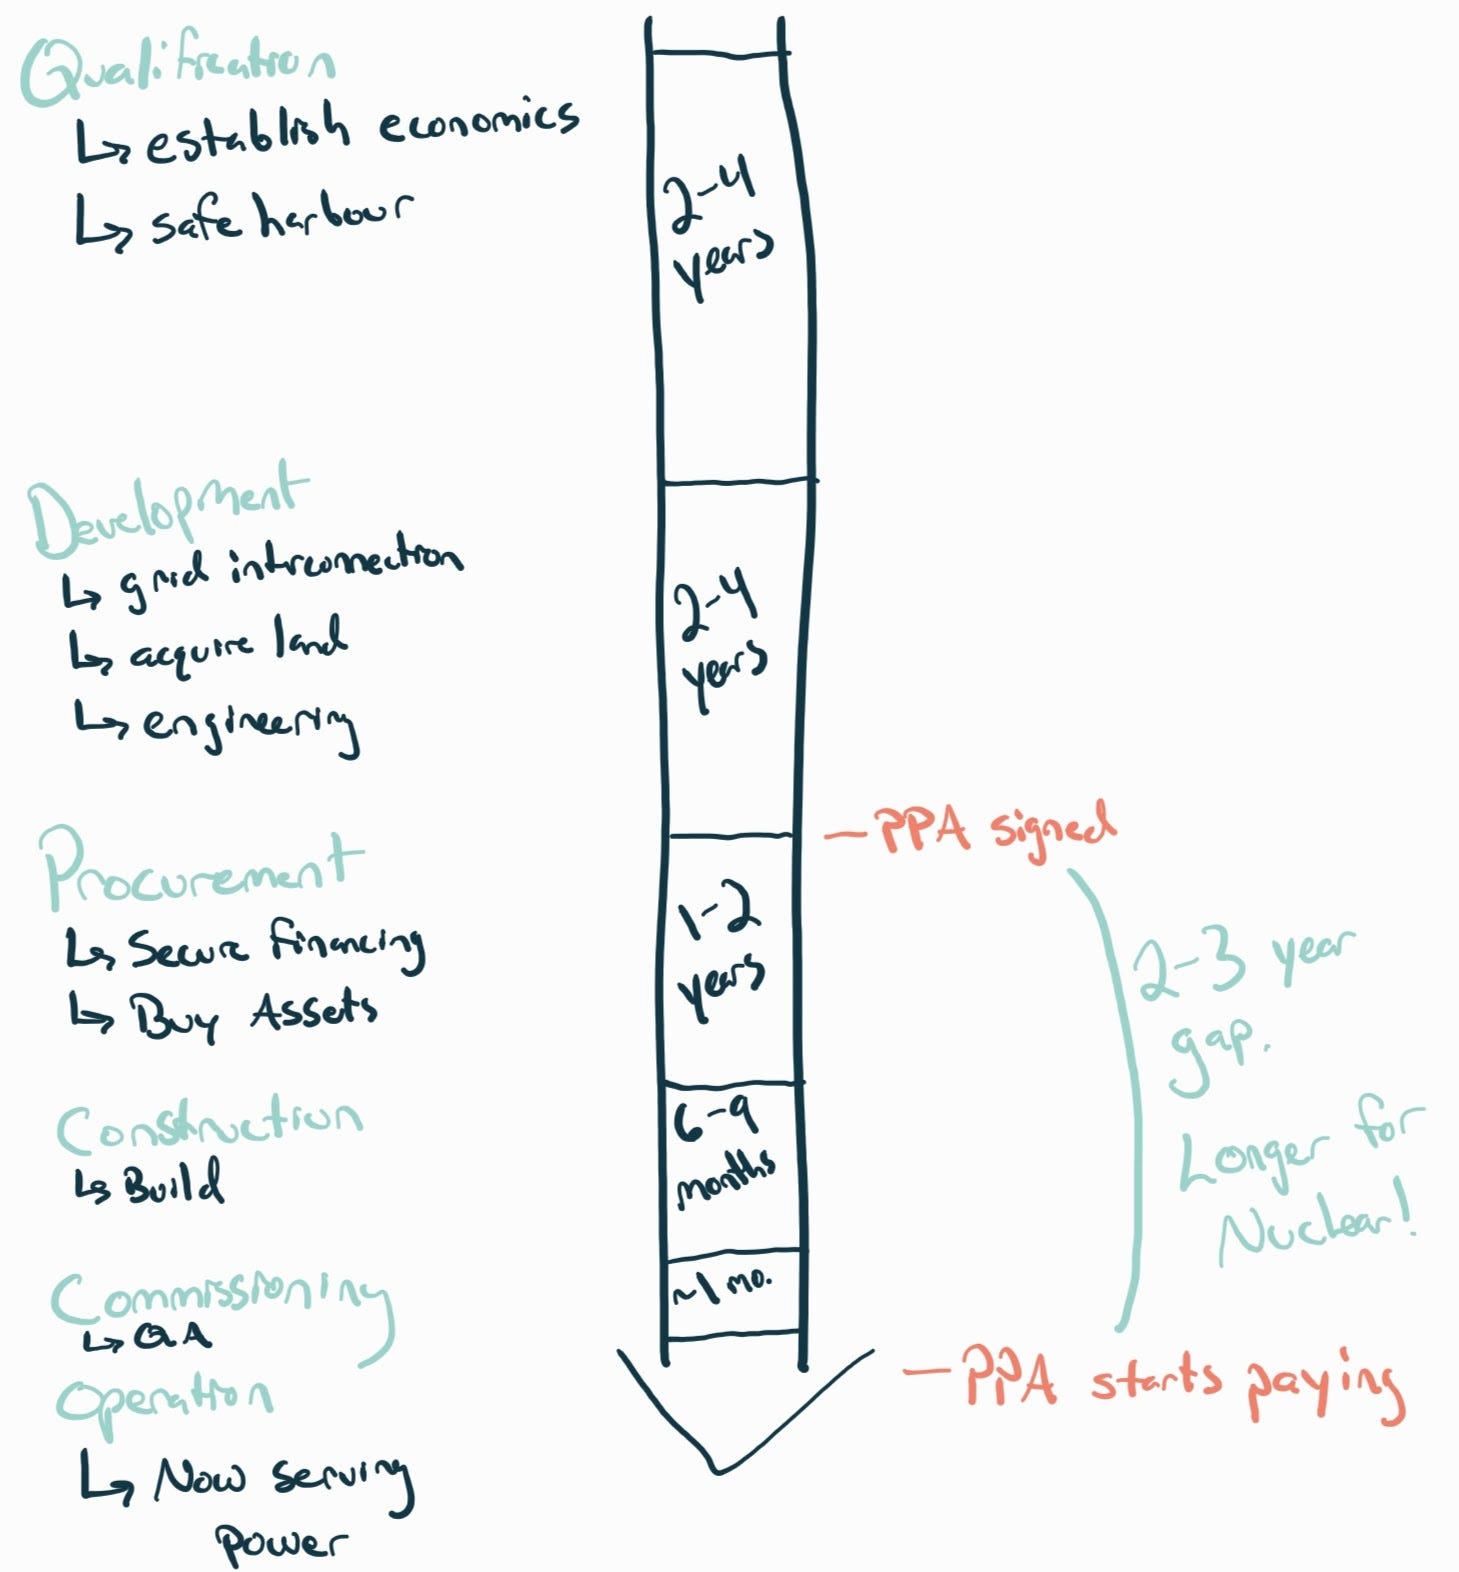 Qualification
↳ establish economics
↳ safe harbour
2-4
years
Development
↳ grid interconnection
↳ acquire land
↳ engineering
2-4
years
— PPA signed
Procurement
↳ Secure financing
↳ Buy Assets
1-2
years
2-3 year
gap.
Longer for
Nuclear!
Construction
↳ Build
6-9
months
Commissioning
↳ QA
~1 mo.
— PPA starts paying
Operation
↳ Now serving
power